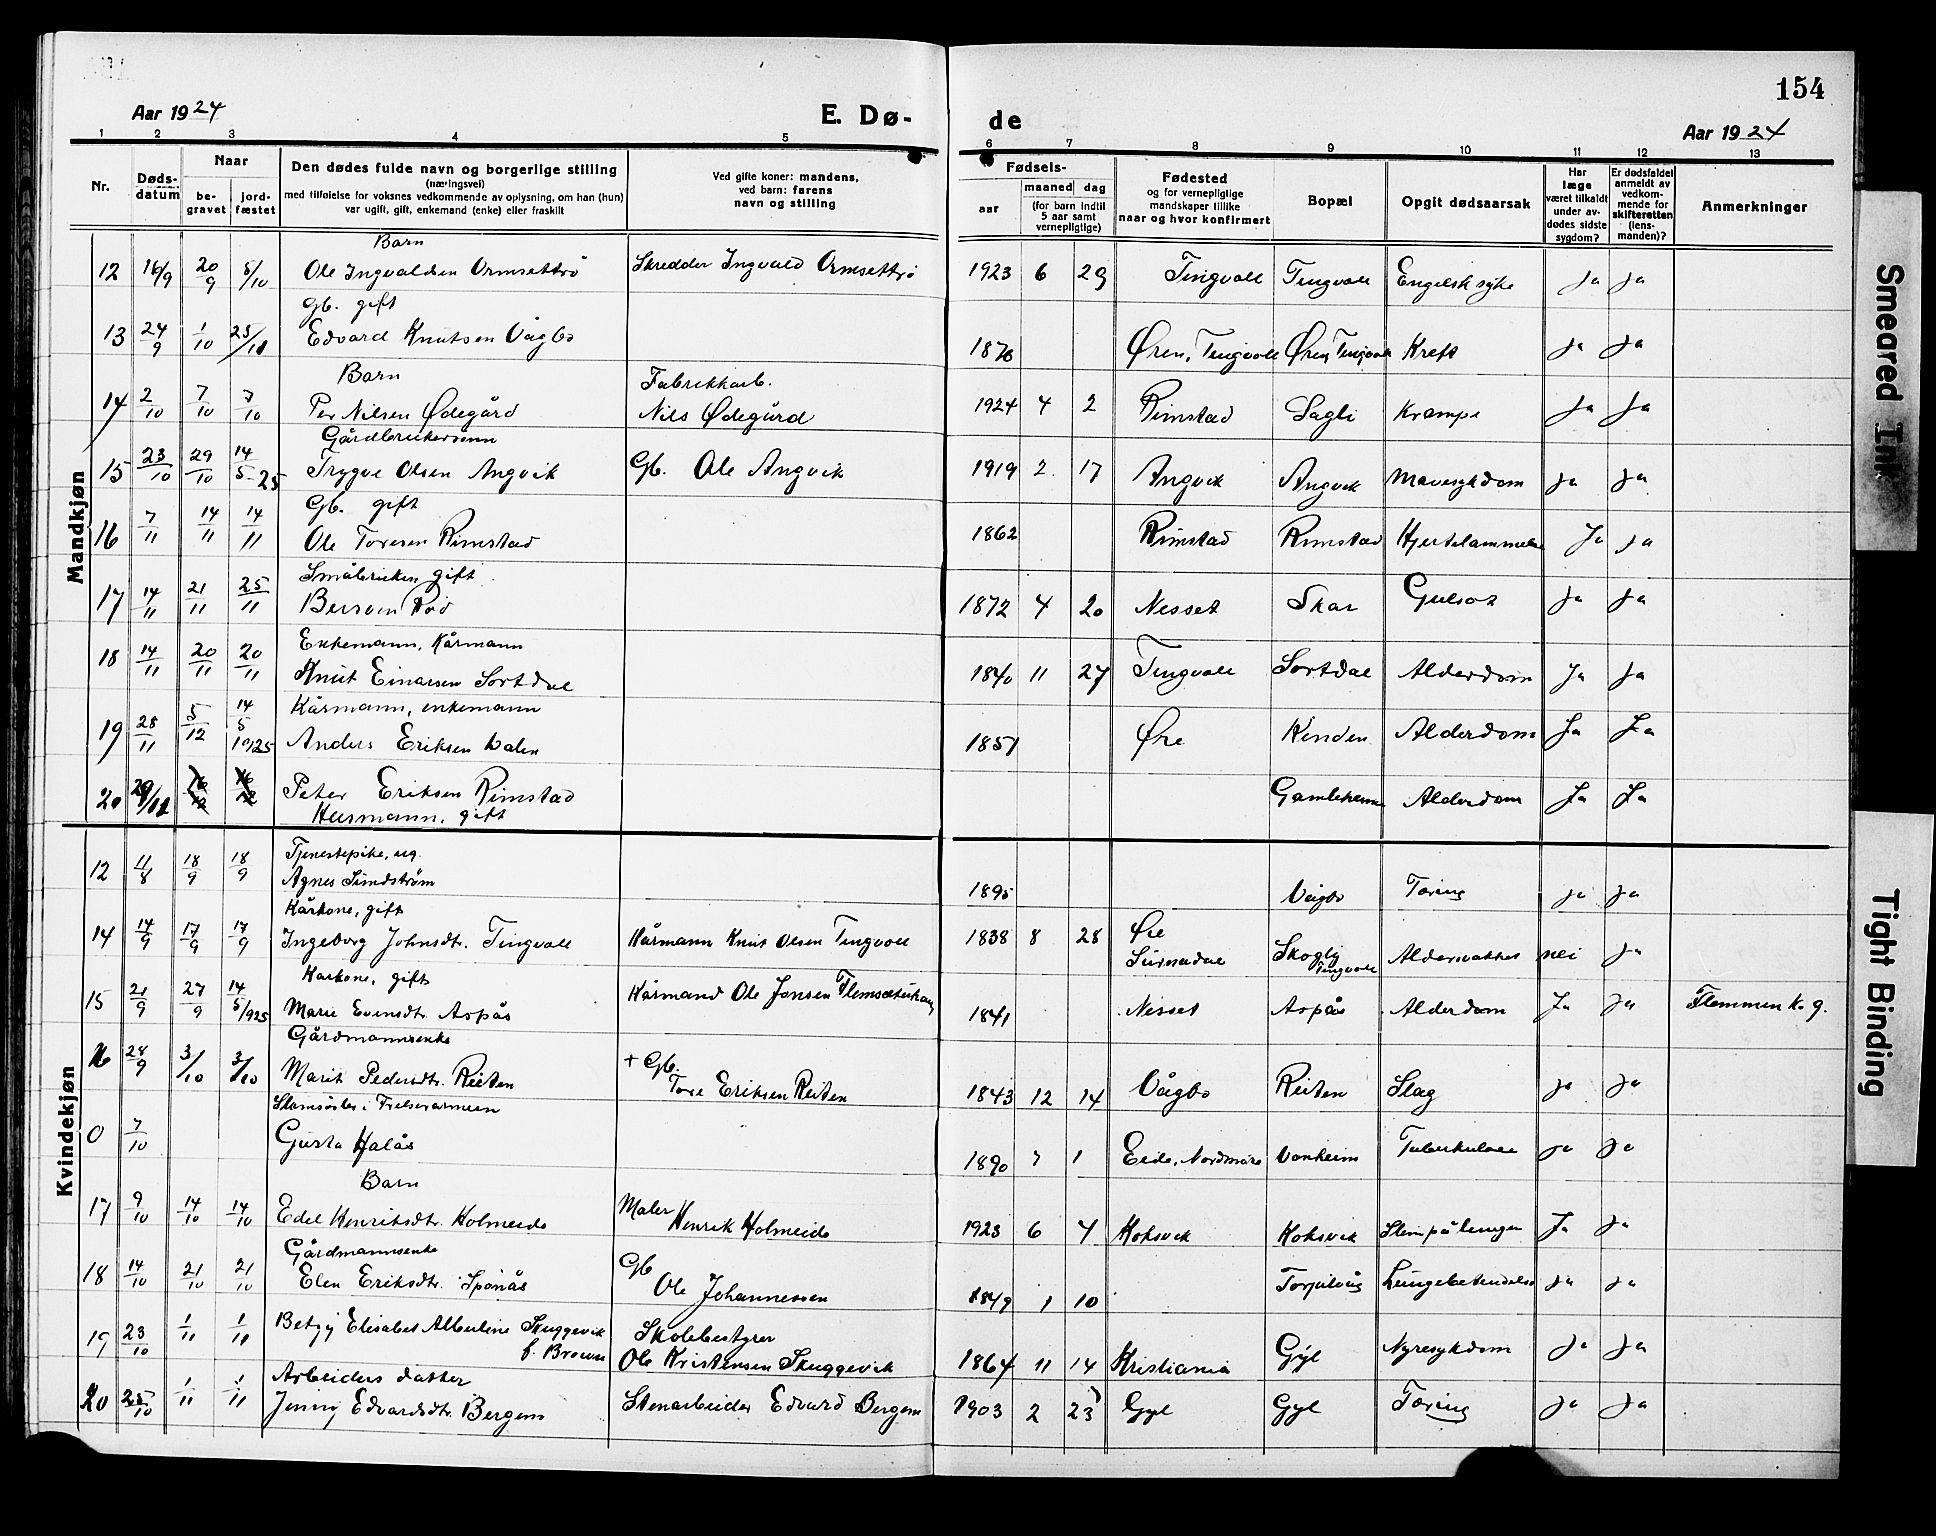 154
Aar 1924
E. Dø-
de
Aar 1924
1 2 3 4 5 6 7 8 9 10 11 12 13
Nr.
Døds-
datum
Naar
be-
gravet
jord-
fæstet
Den dødes fulde navn og borgerlige stilling
(næringsvei)
med tilføielse for voksnes vedkommende av oplysning, om han (hun)
var ugift, gift, enkemand (enke) eller fraskilt
Ved gifte koner: mandens,
ved barn: farens
navn og stilling
Fødsels-
aar
maaned dag
(for barn indtil
5 aar samt
vernepligtige)
Fødested
og for vernepligtige
mandskaper tillike
naar og hvor konfirmert
Bopæl
Opgit dødsaarsak
Har
læge
været tilkaldt
under av-
dødes sidste
sygdom?
Er dødsfaldet
anmeldt av
vedkom-
mende for
skifteretten
(lens-
manden)?
Anmerkninger
Mandkjøn
Barn
12 16/9 20/9 5/10 Ole Ingvaldsen Ormsettrø Skredder Ingvald Ormsettrø 1923 6 29 Tingvoll Tingvoll Engelsk syke Ja Ja
Gb. gift
13 24/9 1/10 25/10 Edvard Knutsen Vågbø 1876 Øren, Tingvoll Øren, Tingvoll Kreft Ja Ja
Barn Fabrikkarb.
14 2/10 7/10 7/10 Per Nilsen Ødegård Nils Ødegård 1924 4 2 Rimstad Sagli Krampe Ja Ja
Gårdbrukersønn
15 23/10 29/10 14/5-25 Trygve Olsen Angvik Gb. Ole Angvik 1919 2 17 Angvik Angvik Mavesykdom Ja Ja
Gb. gift
16 7/11 14/11 14/11 Ole Toresen Rimstad 1862 Rimstad Rimstad Hjertelammelse Ja Ja
Småbruker, gift
17 14/11 21/11 25/11 Bersven Rød 1872 4 20 Nesset Skar Gulsot Ja Ja
Enkemann, Kårmann
18 14/11 20/11 20/11 Knut Einarsen Sortdal 1840 11 27 Tingvoll Sortdal Alderdom Ja Ja
Kårmann, enkemann
19 28/11 5/12 14/5 1925 Anders Eriksen Valen 1851 Øre Kinden Alderdom Ja Ja
20 29/11 16/12 16/12 Peter Eriksen Rimstad Gamleheimen Alderdom Ja Ja
Husmann, gift
Kvindekjøn
Tjenestepike, ug.
12 11/8 18/9 18/9 Agnes Sundstrøm 1895 Vågbø Tæring Ja Ja
Kårkone, gift
14 14/9 17/9 17/9 Ingeborg Johnsdtr. Tingvoll Kårmann Knut Olsen Tingvoll 1838 8 28 Øre Surnadal Skogly Tingvoll Aldersvakhet nei Ja
Kårkone, gift
15 21/9 27/9 14/5 1925 Marie Evensdtr. Aspås Kårmand Ole Jonsen 1841 Nesset Aspås Alderdom Ja Ja Flemmen k. g.
Gårdmannsenke
16 28/9 3/10 3/10 Marit Pedersdtr. Reiten + Gb. Tore Eriksen Reiten 1843 12 14 Vågbø Reiten Slag Ja Ja
Slumsøster i Frelsesarmeen
0 7/10 Gusta Halås 1890 7 1 Eide, Nordmøre Vonheim Tuberkulose Ja Ja
Barn
17 9/10 14/10 14/10 Edel Henriksdtr. Holmeide Maler Henrik Holmeide 1923 6 4 Koksvik Koksvik Slem på lungen Ja Ja
Gårdmannsenke
18 14/10 21/10 21/10 Elen Eriksdtr. Spånås Gb Ole Johannessen 1849 1 10 Torjulvåg Lungebetendelse Ja Ja
19 23/10 1/11 1/11 Betzy Elisabet Albertine Skuggevik f. Brown Skolebestyrer Ole Kristensen Skuggevik 1864 11 14 Kristiania Gyl Nyresykdom Ja Ja
Arbeiders datter
20 25/10 1/11 1/11 Jenny Edvardsdtr. Bergem Stenarbeider Edvard Bergem 1903 2 23 Gyl Gyl Tæring Ja Ja
Smeared Ink
Tight Binding